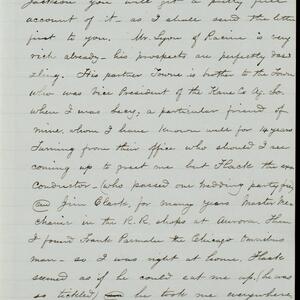 Jackson you will get a pretty full
account of it - as I shall send the letter
first to you. Mr. Lyon of Racine is very
rich already - his prospects are perfectly daz
zling. His partner Towne is brother to the Towne
who was Vice President of the Kane Co Ag. So.
when I was Secy, a particular friend of
mine whom I have known well for 14 years
Turning from their office who should I see
coming up to greet me but Flack the
Conductor - (who passed our wedding party free)
and Jim Clark, for many years Master Me
chanic in the R.R. shops at Aurora. Then
I found Frank Parmalee the Chicago Omnibus
man - so I was right at home. Flack
seemed as if he could eat me up, (he was
so tickled) he took me everywhere